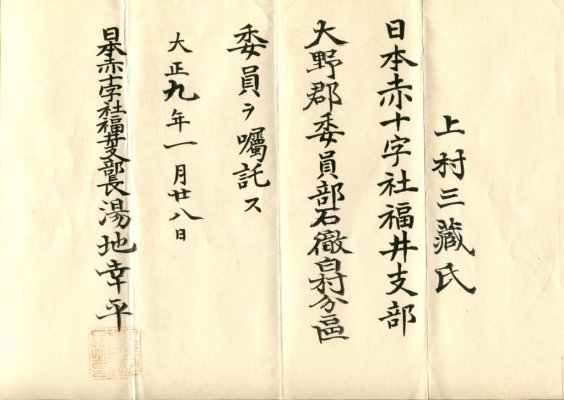 上村三藏氏
日本赤十字社福井支部
大野郡委員部石徹白村分區
委員ヲ囑託ス
大正九年一月廿八日
日本赤十字社福井支部長湯地幸平